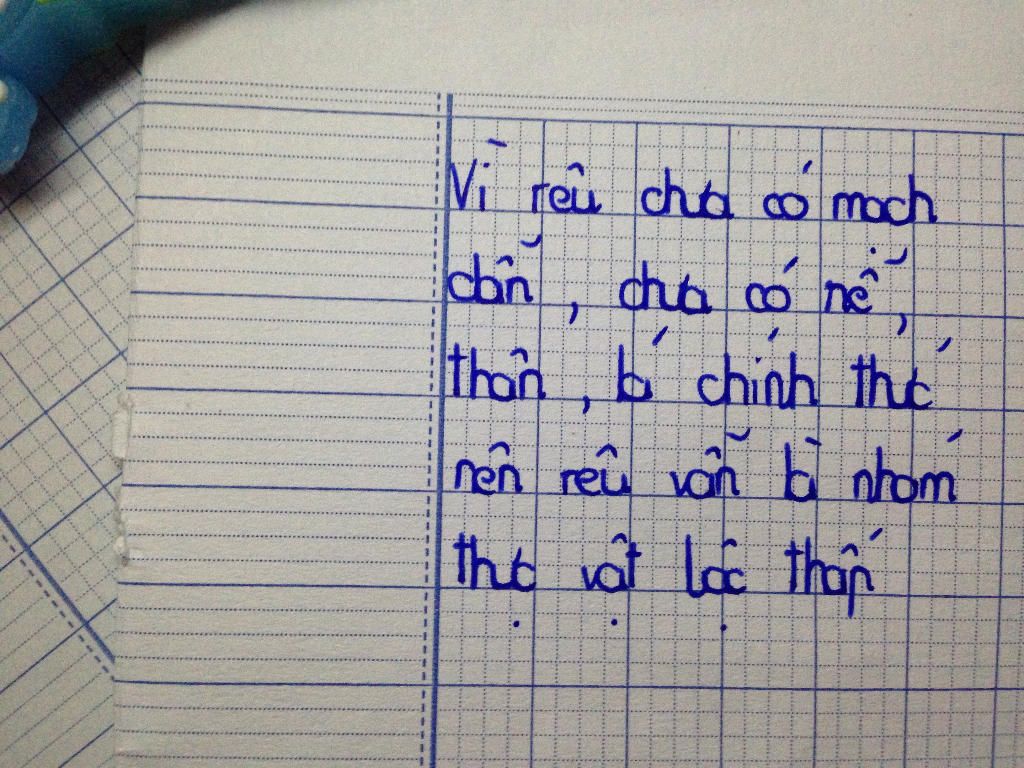 Vì rêu chưa có mạch
dẫn, chưa có rễ,
thân, lá chính thức
nên rêu vẫn là nhóm
thực vật bậc thấp